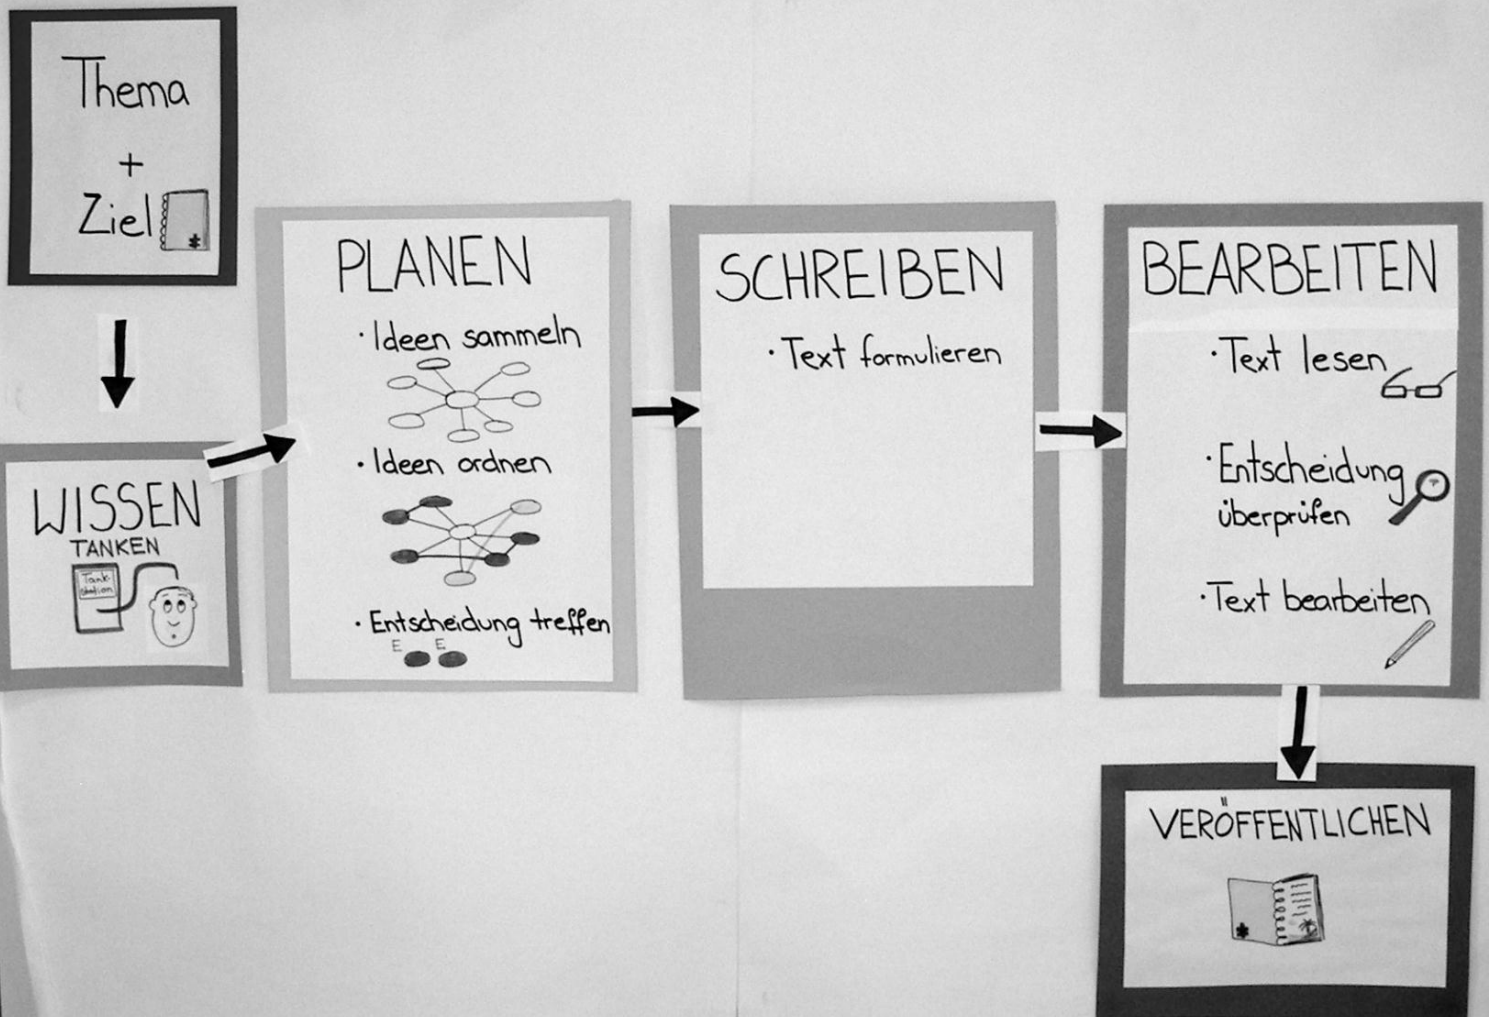 Thema
+
Ziel
WISSEN
TANKEN
Tank-
station
PLANEN
· Ideen sammeln
· Ideen ordnen
· Entscheidung treffen
E E
SCHREIBEN
· Text formulieren
BEARBEITEN
· Text lesen
· Entscheidung
überprüfen
· Text bearbeiten
VERÖFFENTLICHEN